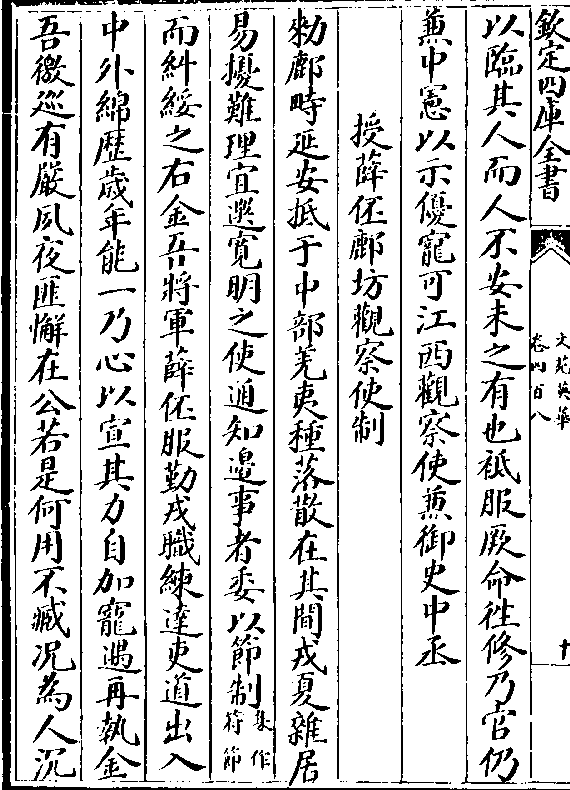 欽定四庫全書
文苑英華
卷四百八
十
以臨其人而人不安未之有也祗服厥命往修乃官仍
兼中憲以示優寵可江西觀察使兼御史中丞
授薛伾鄜坊觀察使制
勑鄜畤延安抵于中部羌夷種落散在其間戎夏雜居
易擾難理宜選寛明之使通知邊事者委以節制集作符節
而糾綏之右金吾將軍薛伾服勤戎職練達吏道出入
中外綿歷歲年能一乃心以宣其力自加寵遇再執金
吾徼廵有嚴夙夜匪懈在公若是何用不臧况為人沉